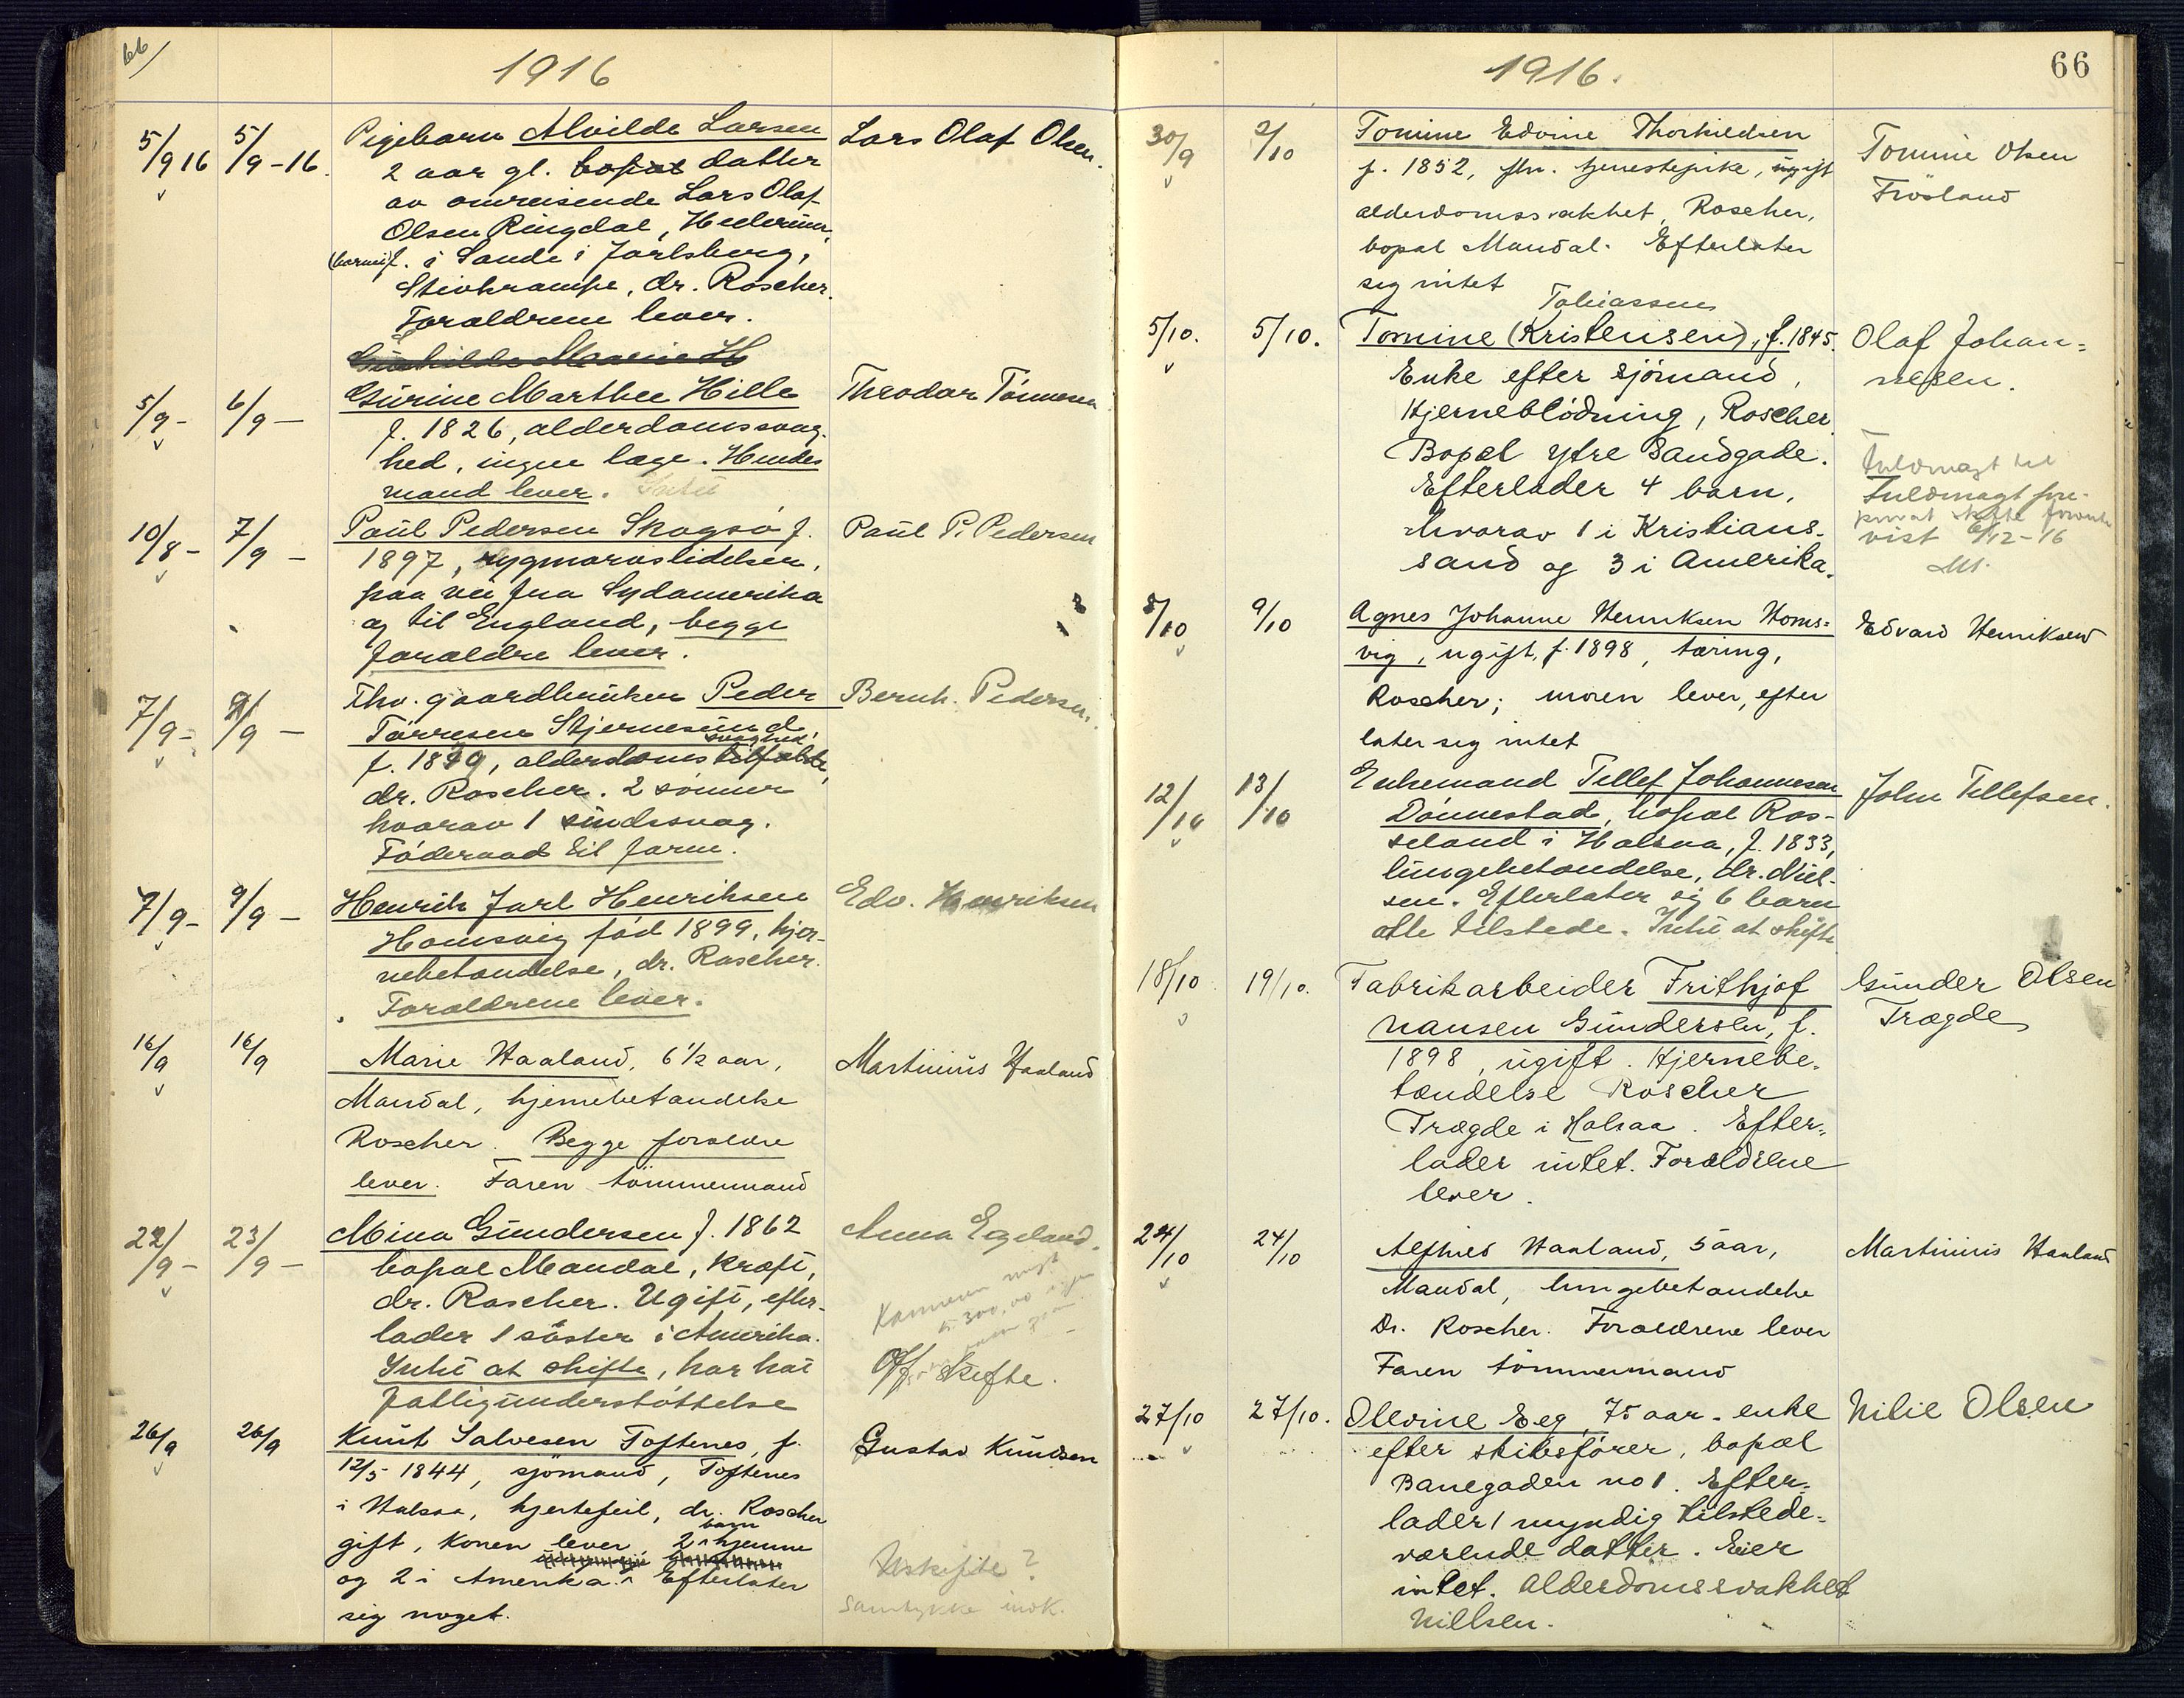 66/
1916
5/9 16 5/9-16. Pigebarn Alvilde Larsen Lars Olaf Olsen.
2 aar gl. datter
av omreisende Lars Olaf
Olsen Ringdal, Hedrum,
f. i Sande i Jarlsberg,
Stivkrampe, dr. Roscher.
Foraldrene lever.
5/9- 6/9- Gurine Marthee Hille Theodor Tönnesen
f. 1826, alderdomssvag-
hed, ingen læge. Hendes
mand lever. Intet
10/8- 7/9- Paul Pedersen Skogsö f. Paul P. Pedersen
1897, rygmarvslidelsen,
paa vei fra Sydamerika
og til England, begge
foraldre lever.
7/9- 9/9- Fhv. gaardbruker Peder Bernh. Pedersen.
Törresen Stjernesund,
svaghed,
f. 18 9, alderdoms
dr. Roscher. 2 sönner
hvorav 1 sindssvag.
Föderaad til farm.
7/9- 9/9- Henrik Jarl Henriksen Edv. Henriksen
Homsvig föd 1899, hjer-
nebetændelse, dr. Roscher.
Foraldrene lever.
16/9 16/9 Marie Haaland, 6 1/2 aar, Martinius Haaland
Mandal, hjernebetændelse
Roscher. Begge forældre
lever. Faren tömmermand
22/9- 23/9- Mina Gundersen f. 1862 Anna Egeland.
bopæl Mandal, kræft,
dr. Roscher. Ugift, efter-
lader 1 söster i Amerika.
Intet at skifte, har hat Off. skifte.
fattigunderstöttelse
26/9 26/9 Knut Salvesen Toftenes, f. Gustav Knudsen
12/5 1844, sjömand, Toftenes
i Halsaa, hjertefeil, dr. Roscher
barn
gift, konen lever, 2 hjemme
og 2 i Amerika. Efterlater Uskifte?
sig noget. Samtykke indk.
1916.
66
30/9 2/10 Tomine Edvine Thorkildsen Tomine Olsen
f. 1852, fhv. tjenestepike, ugift Frösland
alderdomssvakhet, Roscher,
bopæl Mandal. Efterlater
sig intet
Tobiassen
5/10. 5/10. Tomine (Kristensen), f. 1845. Olaf Johan=
Enke efter sjömand, nesen.
Hjerneblödning, Roscher
Bopæl ytre Sandgade. Fuldmagt til
Efterlader 4 barn, Fuldmagt fore-
hvorav 1 i Kristians- vist 6/12-16
sand og 3 i Amerika.
8/10 9/10 Agnes Johanne Henriksen Homs= Edvard Henriksen
vig, ugift, f. 1898, tæring,
Roscher; moren lever, efter
later sig intet
12/10 13/10 Enkemand Tellef Johannesen John Tellefsen.
Dönnestad, bopæl Ros-
seland i Halsaa, f. 1833,
lungebetændelse, dr. Niel-
sen. Efterlater sig 6 barn
alle tilstede. Intet at skifte
18/10 19/10. Fabrikarbeider Frithjof Gunder Olsen
Nansen Gundersen, f. Trægde
1898, ugift. Hjernebe-
tændelse Roscher
Trægde i Halsaa. Efter-
lader intet. Forældrene
lever.
24/10 24/10 Alfhild Haaland, 5 aar, Martinius Haaland
Mandal, lungebetændelse
Dr. Roscher. Forældrene lever
Faren tömmermand
27/10 27/10. Olevine Eeg, 75 aar. enke Nilie Olsen
efter skibsförer, bopæl
Banegaden no 1. Efter-
lader 1 myndig tilstede-
værende datter. Eier
intet. Alderdomssvakhet
Nillsen.